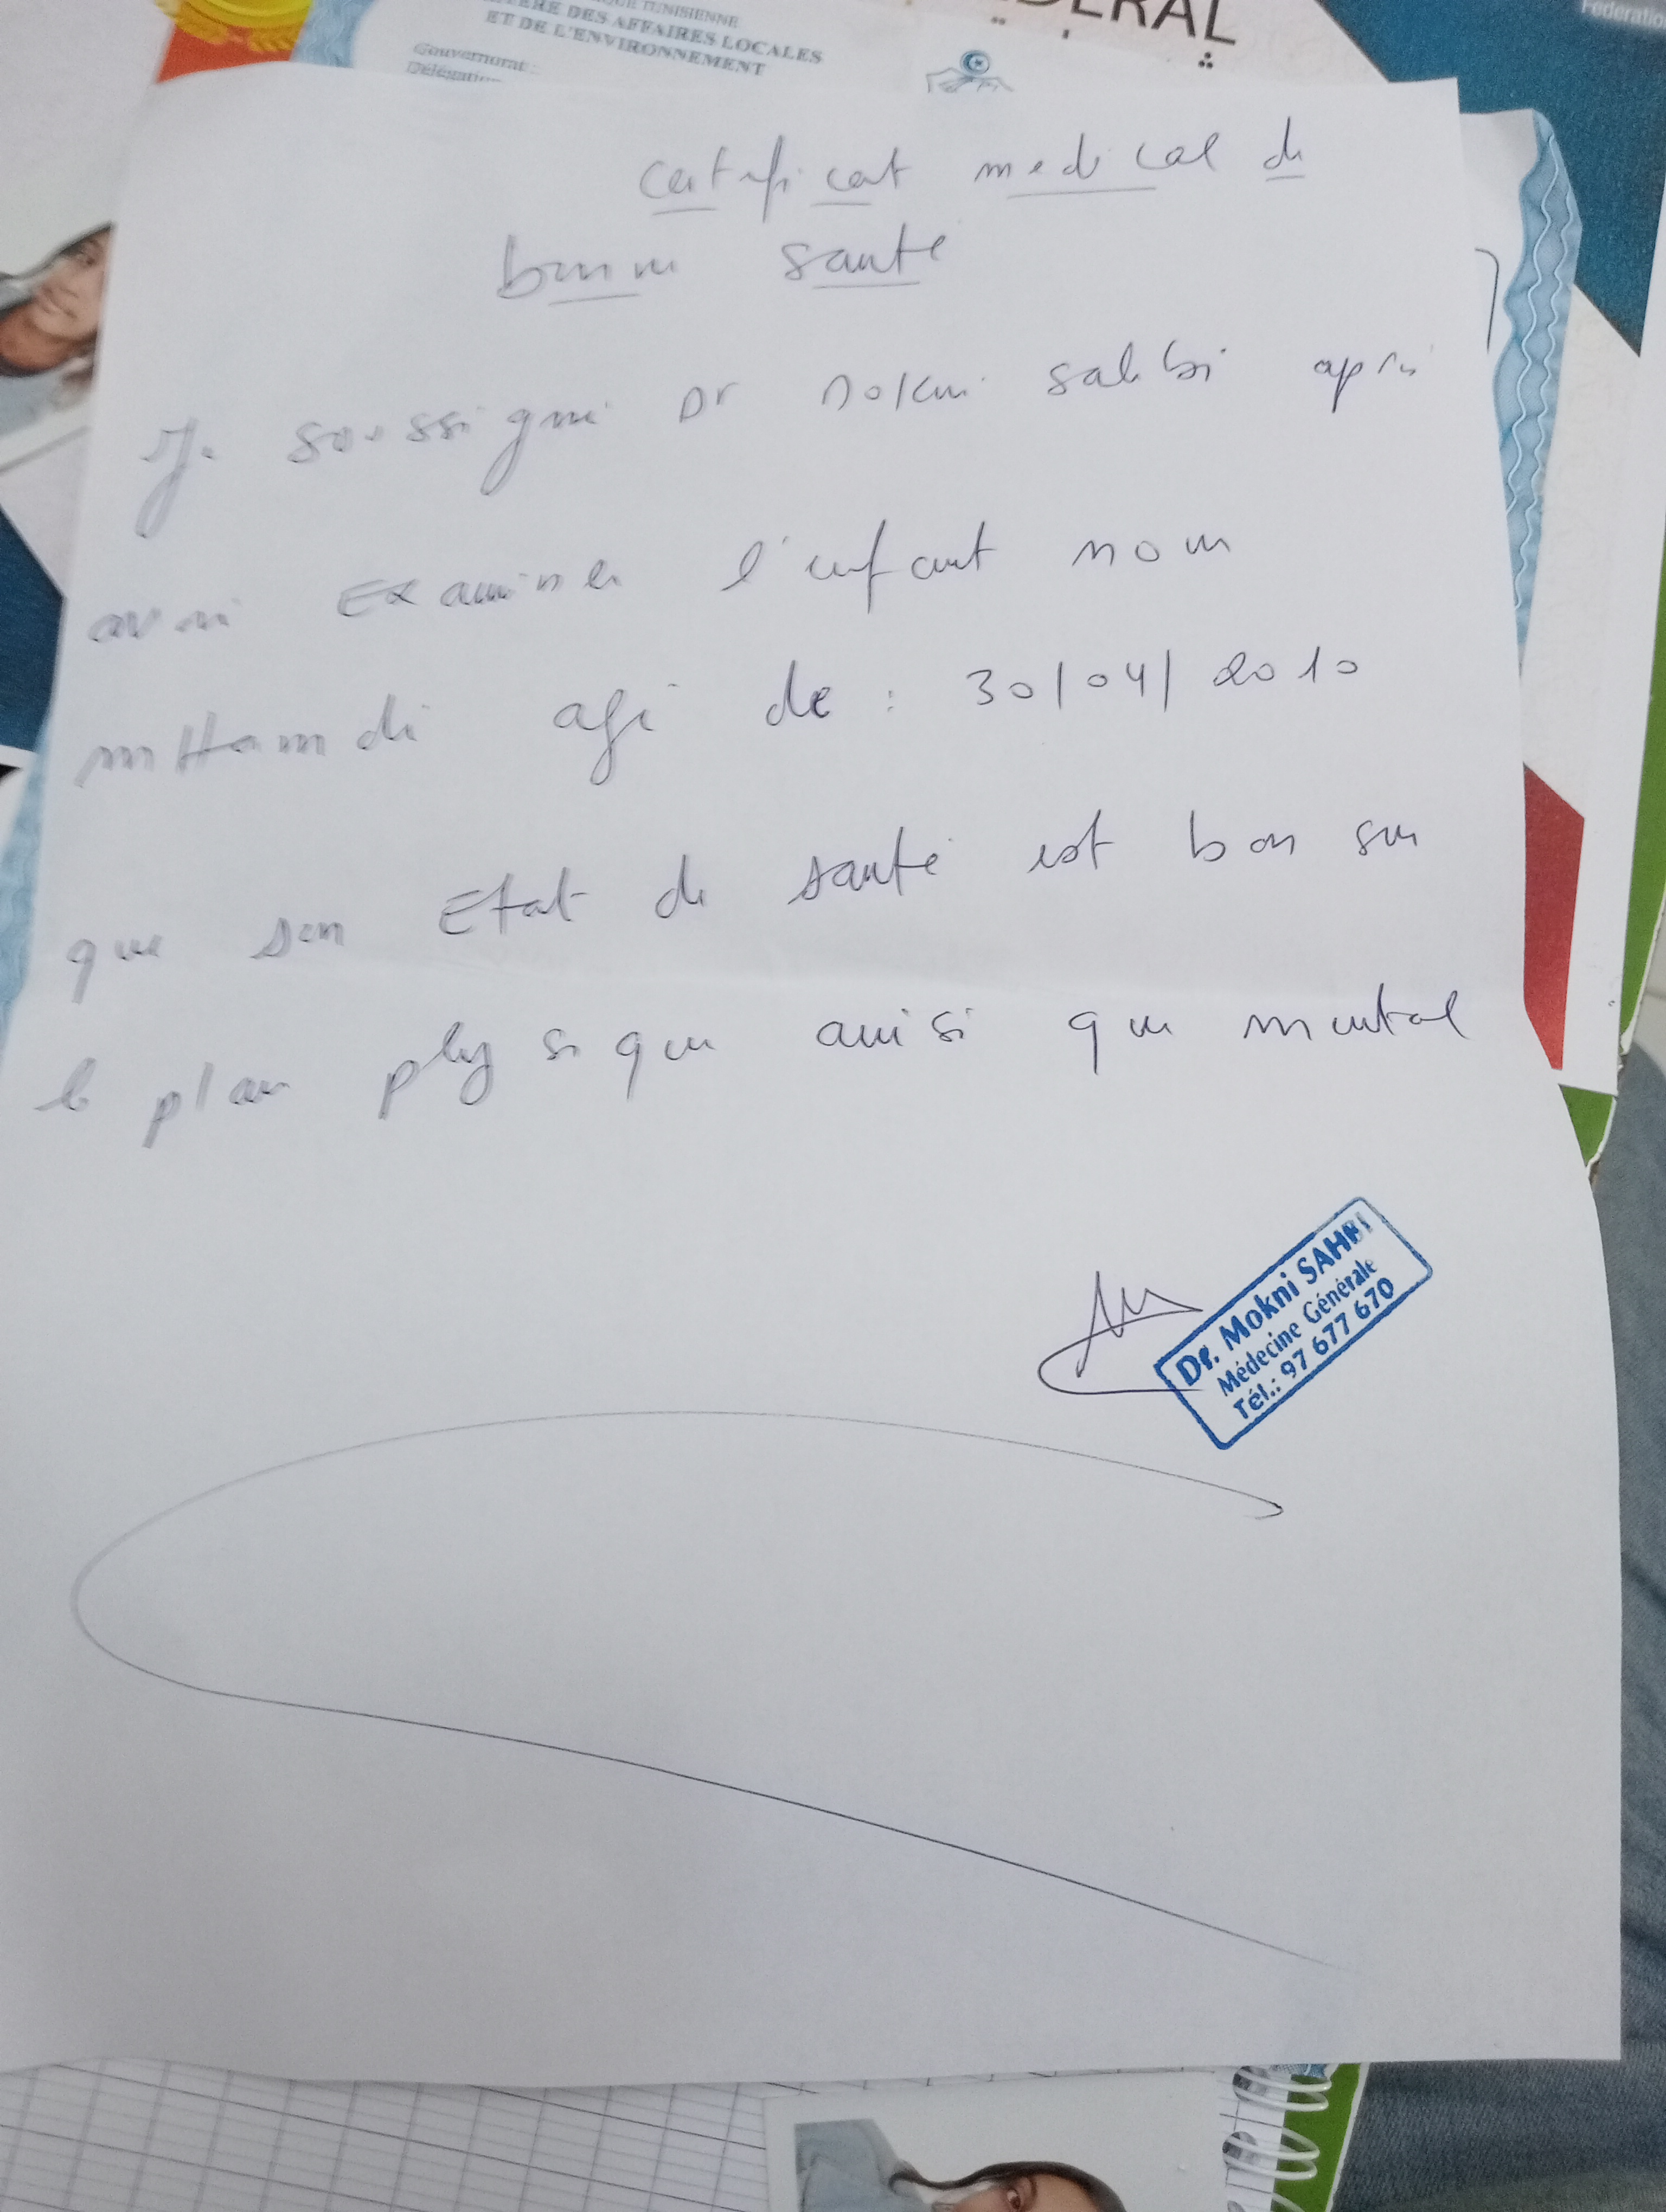 TUNISIENNE
DES AFFAIRES LOCALES
ET DE L'ENVIRONNEMENT
Gouvernorat :
Délégation
Certificat medical de
bonne santé
Je soussigné Dr Mokni sahbi après
avoir Examiner l'enfant nom
Hamdi agé de : 30/04/2010
que son Etat de santé est bon sur
le plan physique ainsi que mental
Dr. Mokni SAHBI
Médecine Générale
Tél.: 97 677 670